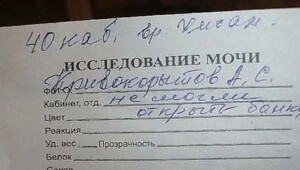 40 каб. вр. Умган.
ИССЛЕДОВАНИЕ МОЧИ
Ф.И.О. Кривокорытов А. С.
Кабинет, отд. не могли
Цвет открыть банку
Реакция
Уд. вес Прозрачность
Белок
Сахар